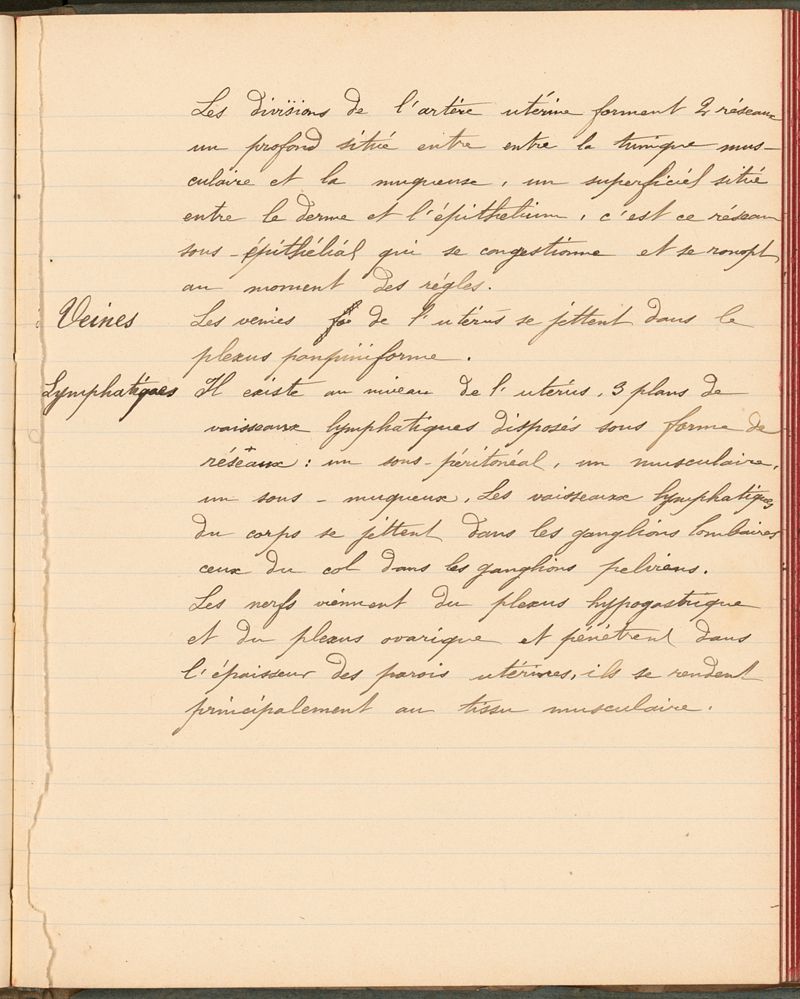 Les divisions de l'artère utérine forment 2 réseaux
un profond situé entre entre la tunique mus-
culaire et la muqueuse, un superficiel situé
entre le derme et l'épithelium, c'est ce réseau
sous-épithélial qui se congestionne et se rompt
au moment des régles.
Veines Les veines de l'utérus se jettent dans le
plexus pampiniforme.
Lymphatiques Il existe au niveau de l'utérus, 3 plans de
vaisseaux lymphatiques disposés sous forme de
réseaux : un sous-péritonéal, un musculaire,
un sous-muqueux. Les vaisseaux lymphatiques
du corps se jettent dans les ganglions lombaires
ceux du col dans les ganglions pelviens.
Les nerfs viennent du plexus hypogastrique
et du plexus ovarique et pénètrent dans
l'épaisseur des parois utérines, ils se rendent
principalement au tissu musculaire.